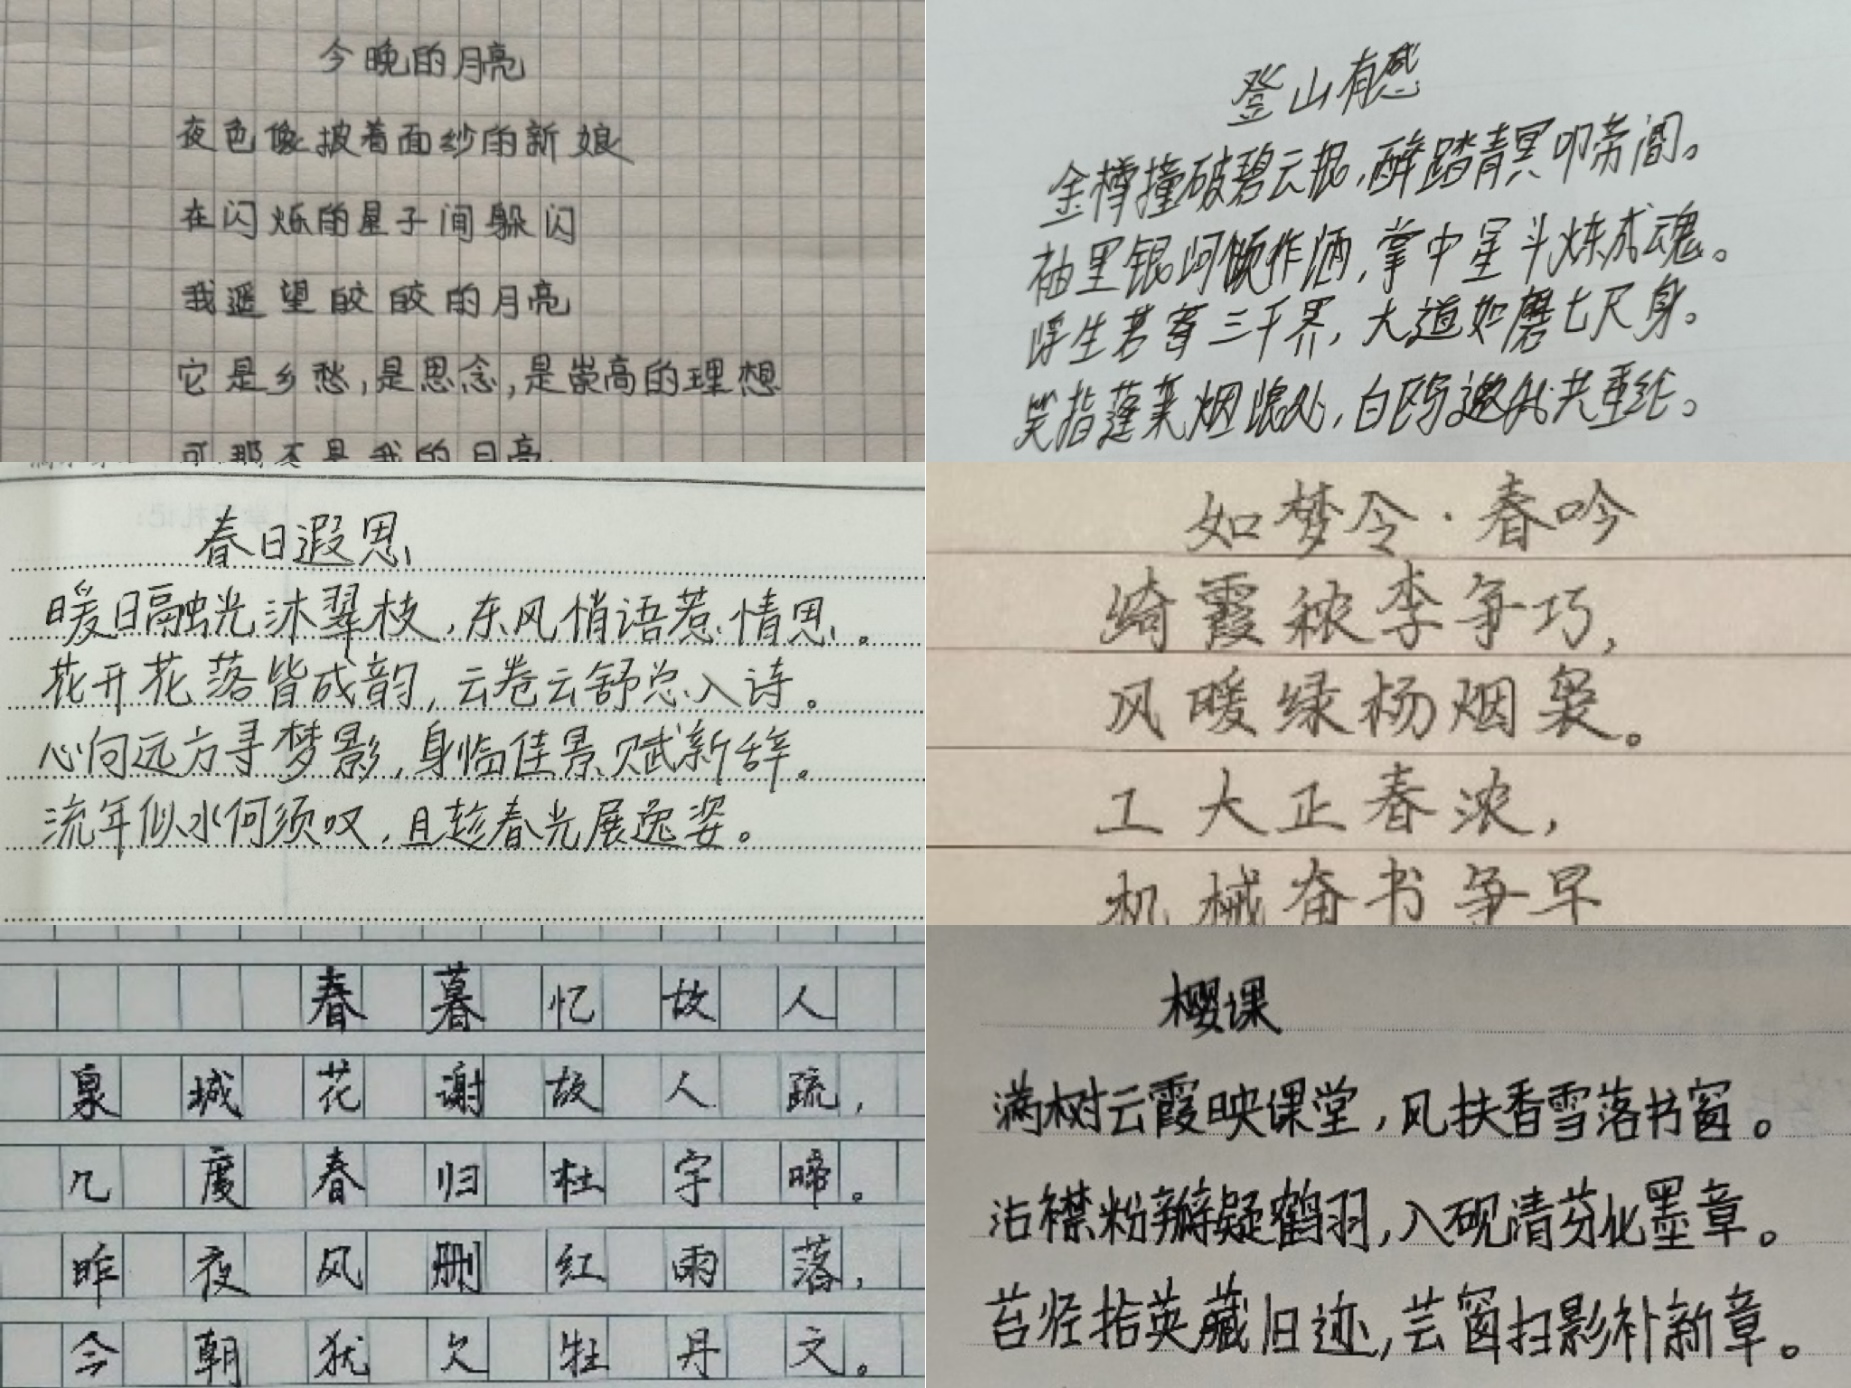 今晚的月亮
夜色像披着面纱的新娘
在闪烁的星子间躲闪
我遥望皎皎的月亮
它是乡愁,是思念,是崇高的理想
可那不是我的月亮
登山有感
金樽撞破碧云根,醉踏青冥叩帝阍。
袖里银河倾作酒,掌中星斗炼成魂。
浮生若寄三千界,大道如磨七尺身。
笑指蓬莱烟浪处,白鸥邀我共重纶。
春日遐思
暖日融光沐翠枝,东风悄语惹情思。
花开花落皆成韵,云卷云舒总入诗。
心向远方寻梦影,身临佳景赋新辞。
流年似水何须叹,且趁春光展逸姿。
如梦令·春吟
绮霞秾李争巧,
风暖绿杨烟袅。
工大正春浓,
机械奋书争早
春暮忆故人
泉城花谢故人疏,
几度春归杜宇啼。
昨夜风删红雨落,
今朝犹欠牡丹文。
樱课
满树云霞映课堂,风扶香雪落书窗。
沾襟粉瓣疑鹤羽,入砚清芬化墨章。
苔径拾英藏旧迹,芸窗扫影补新章。